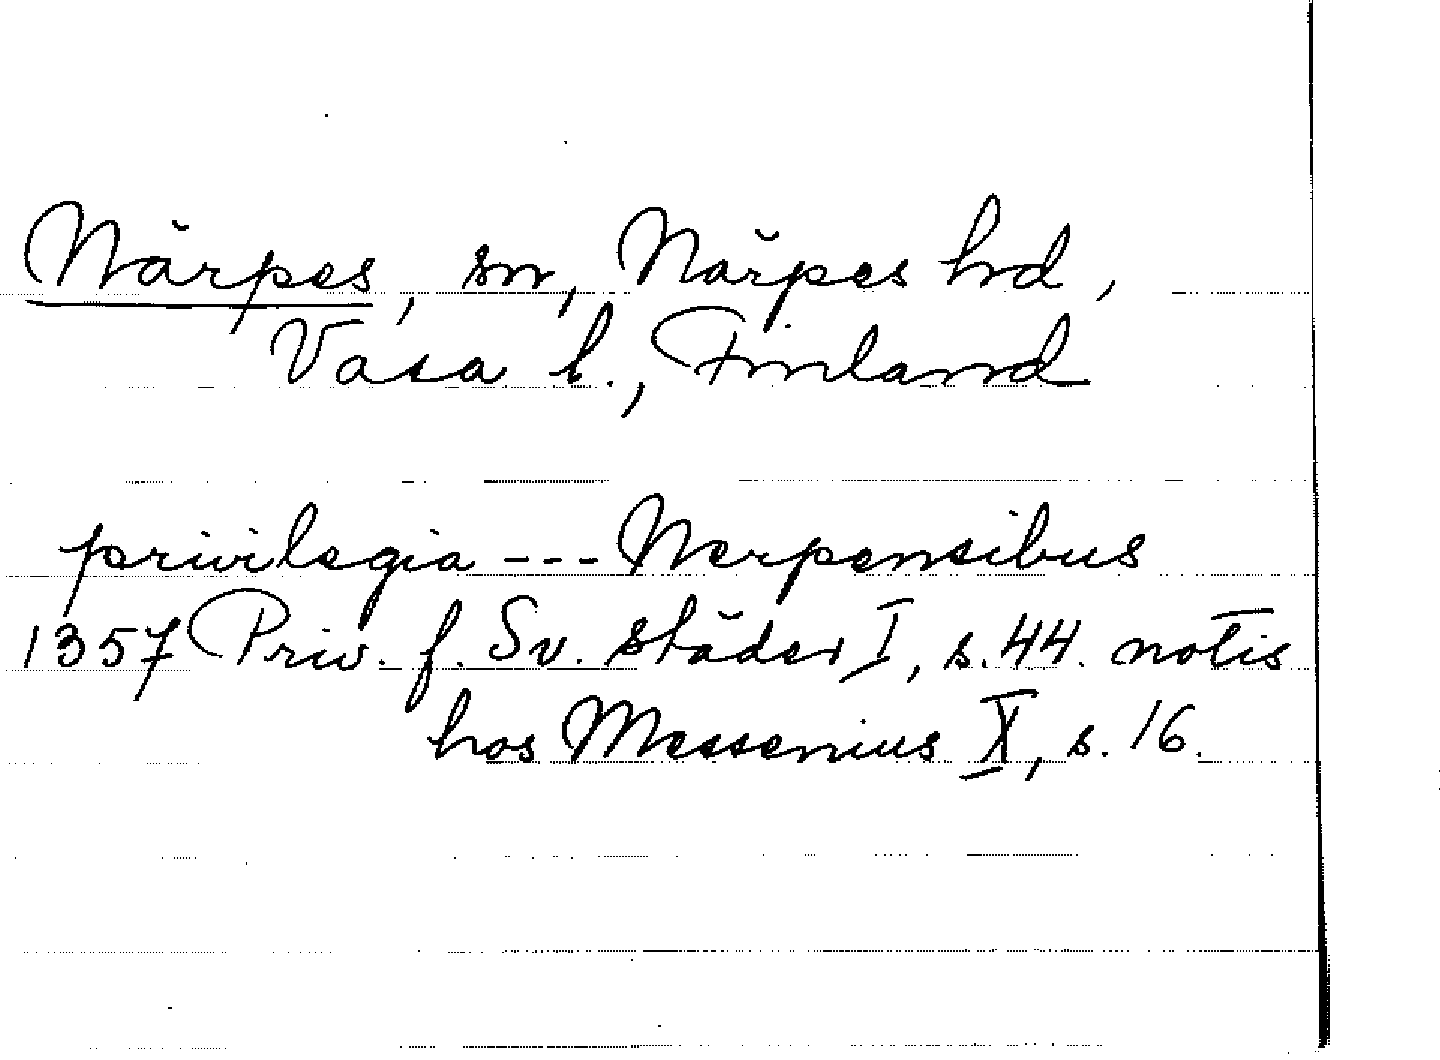 Närpes, sn, Närpes hd,
Vasa l., Finland
privilegia --- Nerpensibus
1357 Priv. f. Sv. städer I, s. 44. notis
hos Messenius X, s. 16.